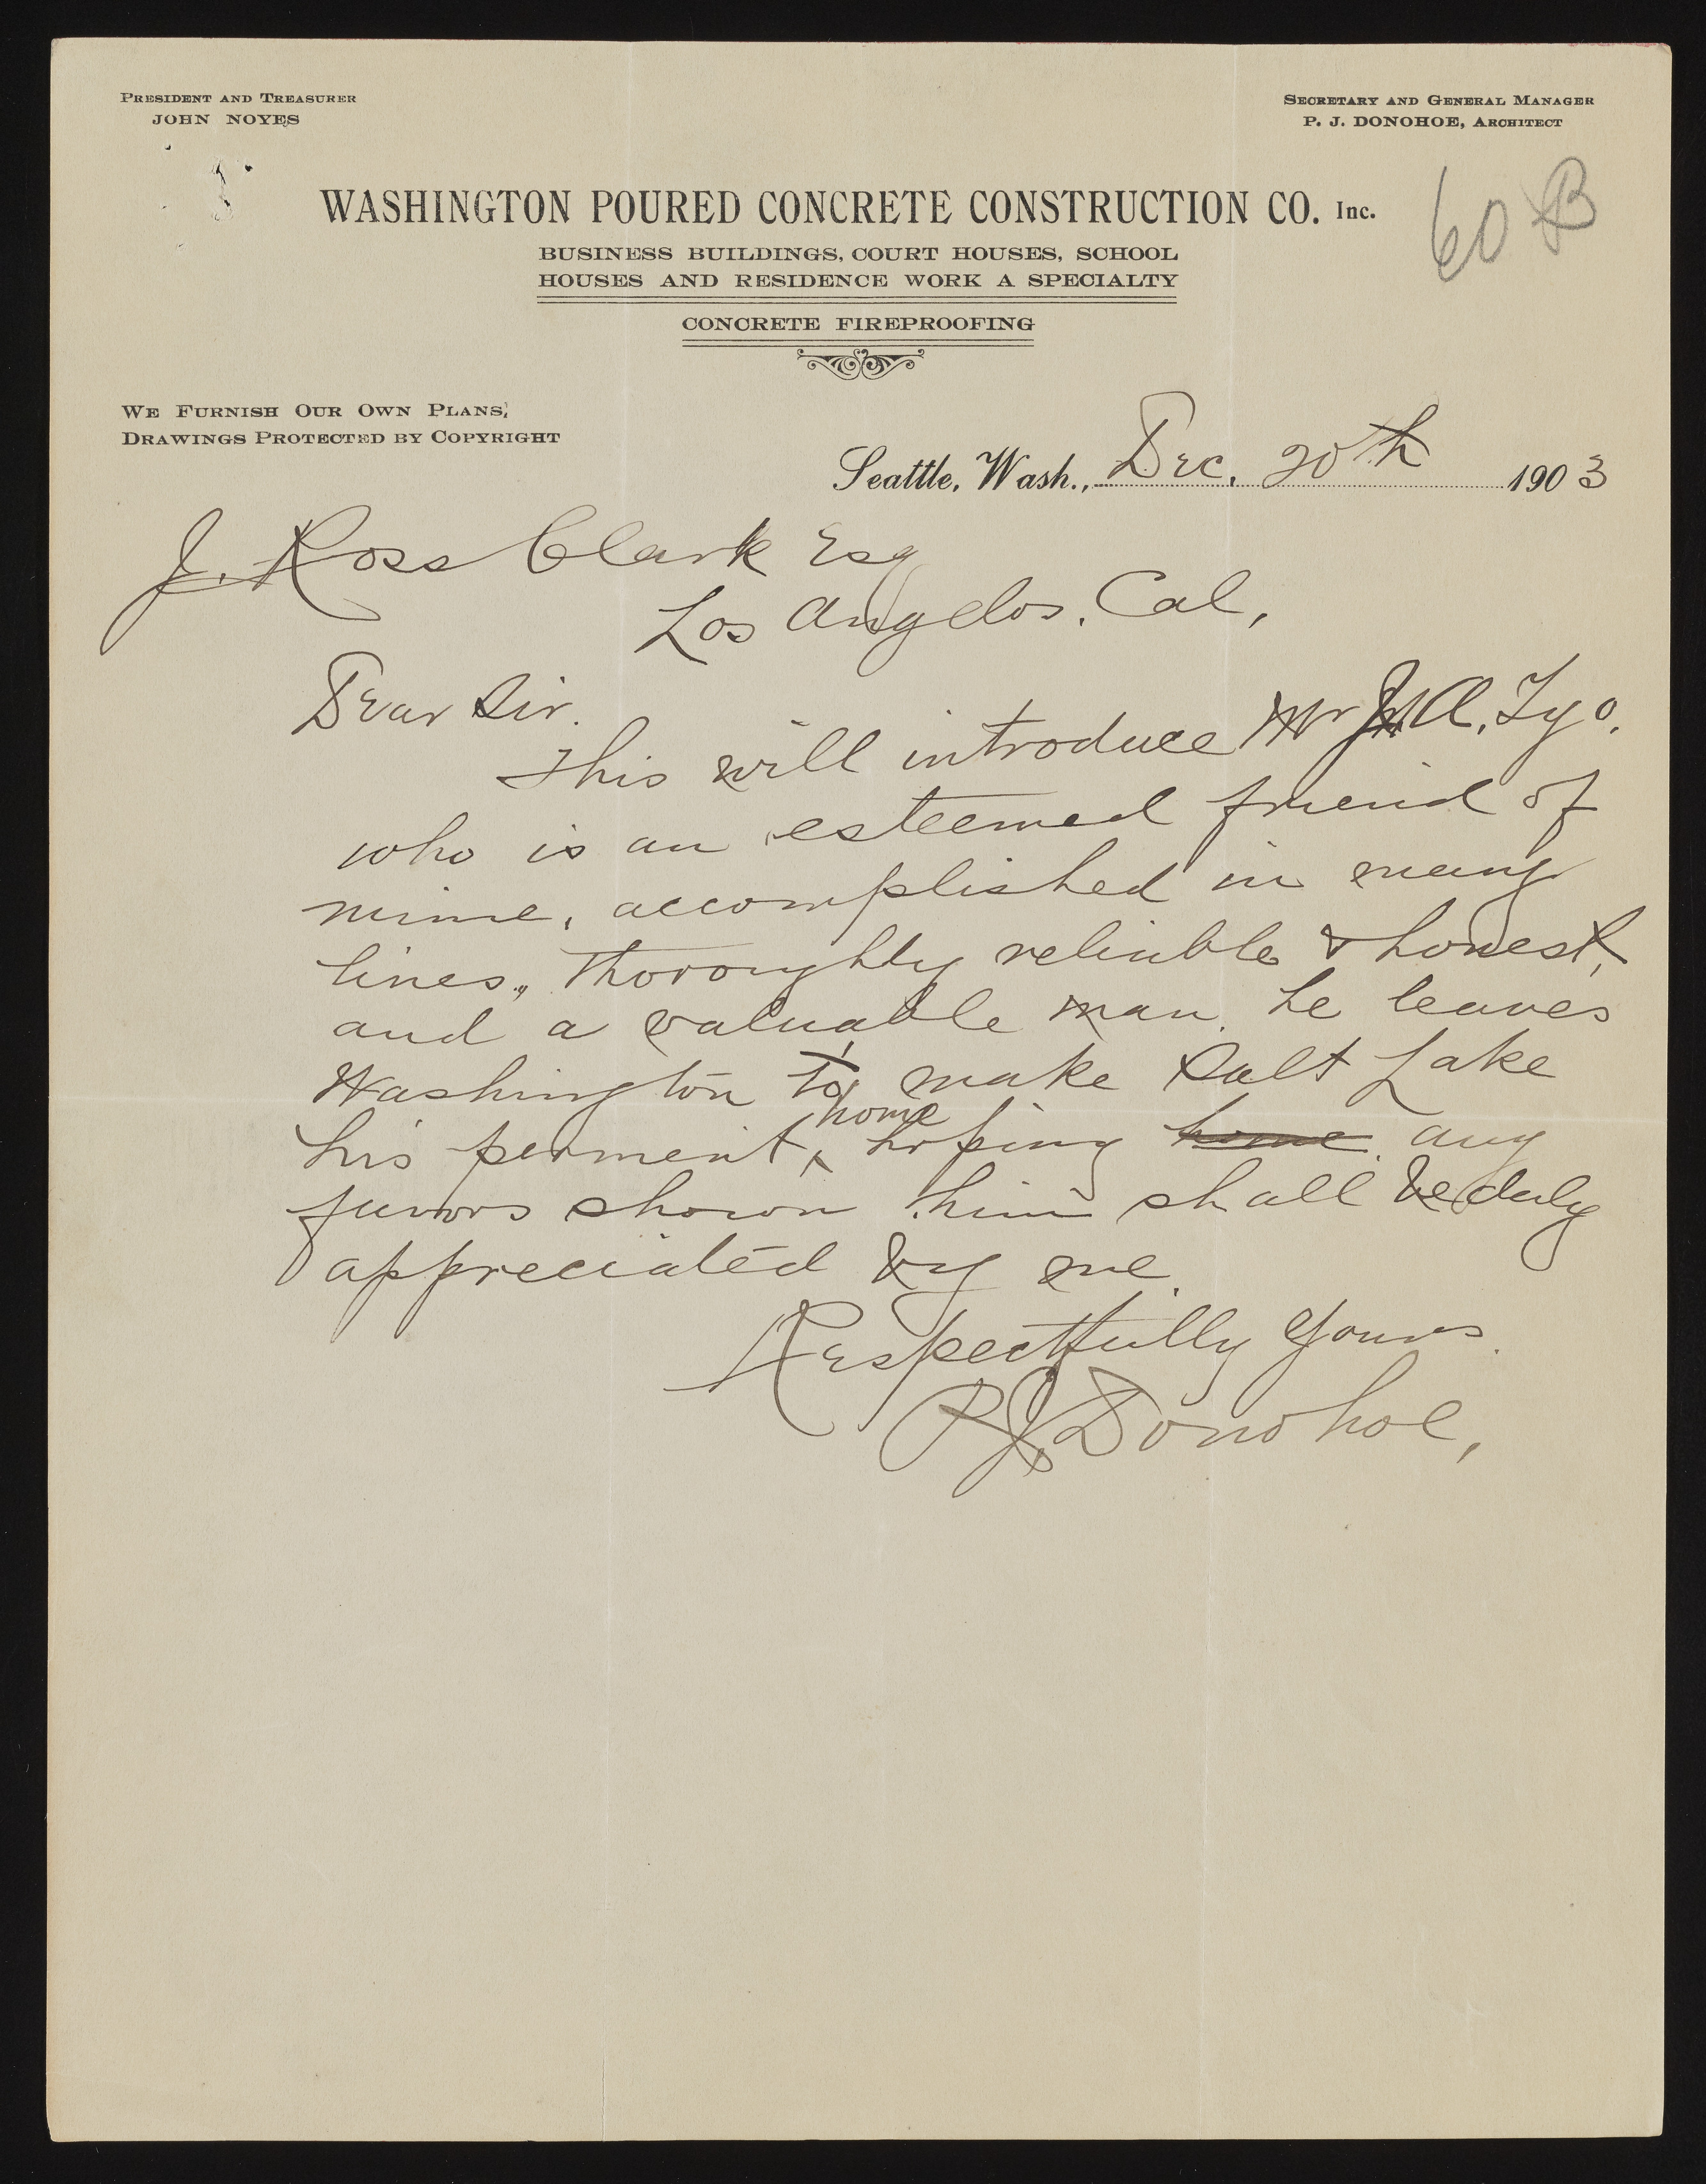 PRESIDENT AND TREASURER
JOHN NOYES
SECRETARY AND GENERAL MANAGER
P. J. DONOHOE, ARCHITECT
60 B
WASHINGTON POURED CONCRETE CONSTRUCTION CO. Inc.
BUSINESS BUILDINGS, COURT HOUSES, SCHOOL
HOUSES AND RESIDENCE WORK A SPECIALTY
CONCRETE FIREPROOFING
WE FURNISH OUR OWN PLANS,
DRAWINGS PROTECTED BY COPYRIGHT
Seattle, Wash., Dec. 20th 1903
J. Ross Clark Esq
Los Angelos. Cal,
Dear Sir.
This will introduce Mr A. Tyo.
who is an esteemed friend of
mine, accomplished in many
lines, thoroughly reliable & honest,
and a valuable man. he leaves
Washington to make Salt Lake
his perment home hoping home any
favors shown him shall be duly
appreciated by me.
Respectfully Yours.
P.J. Donohoe,